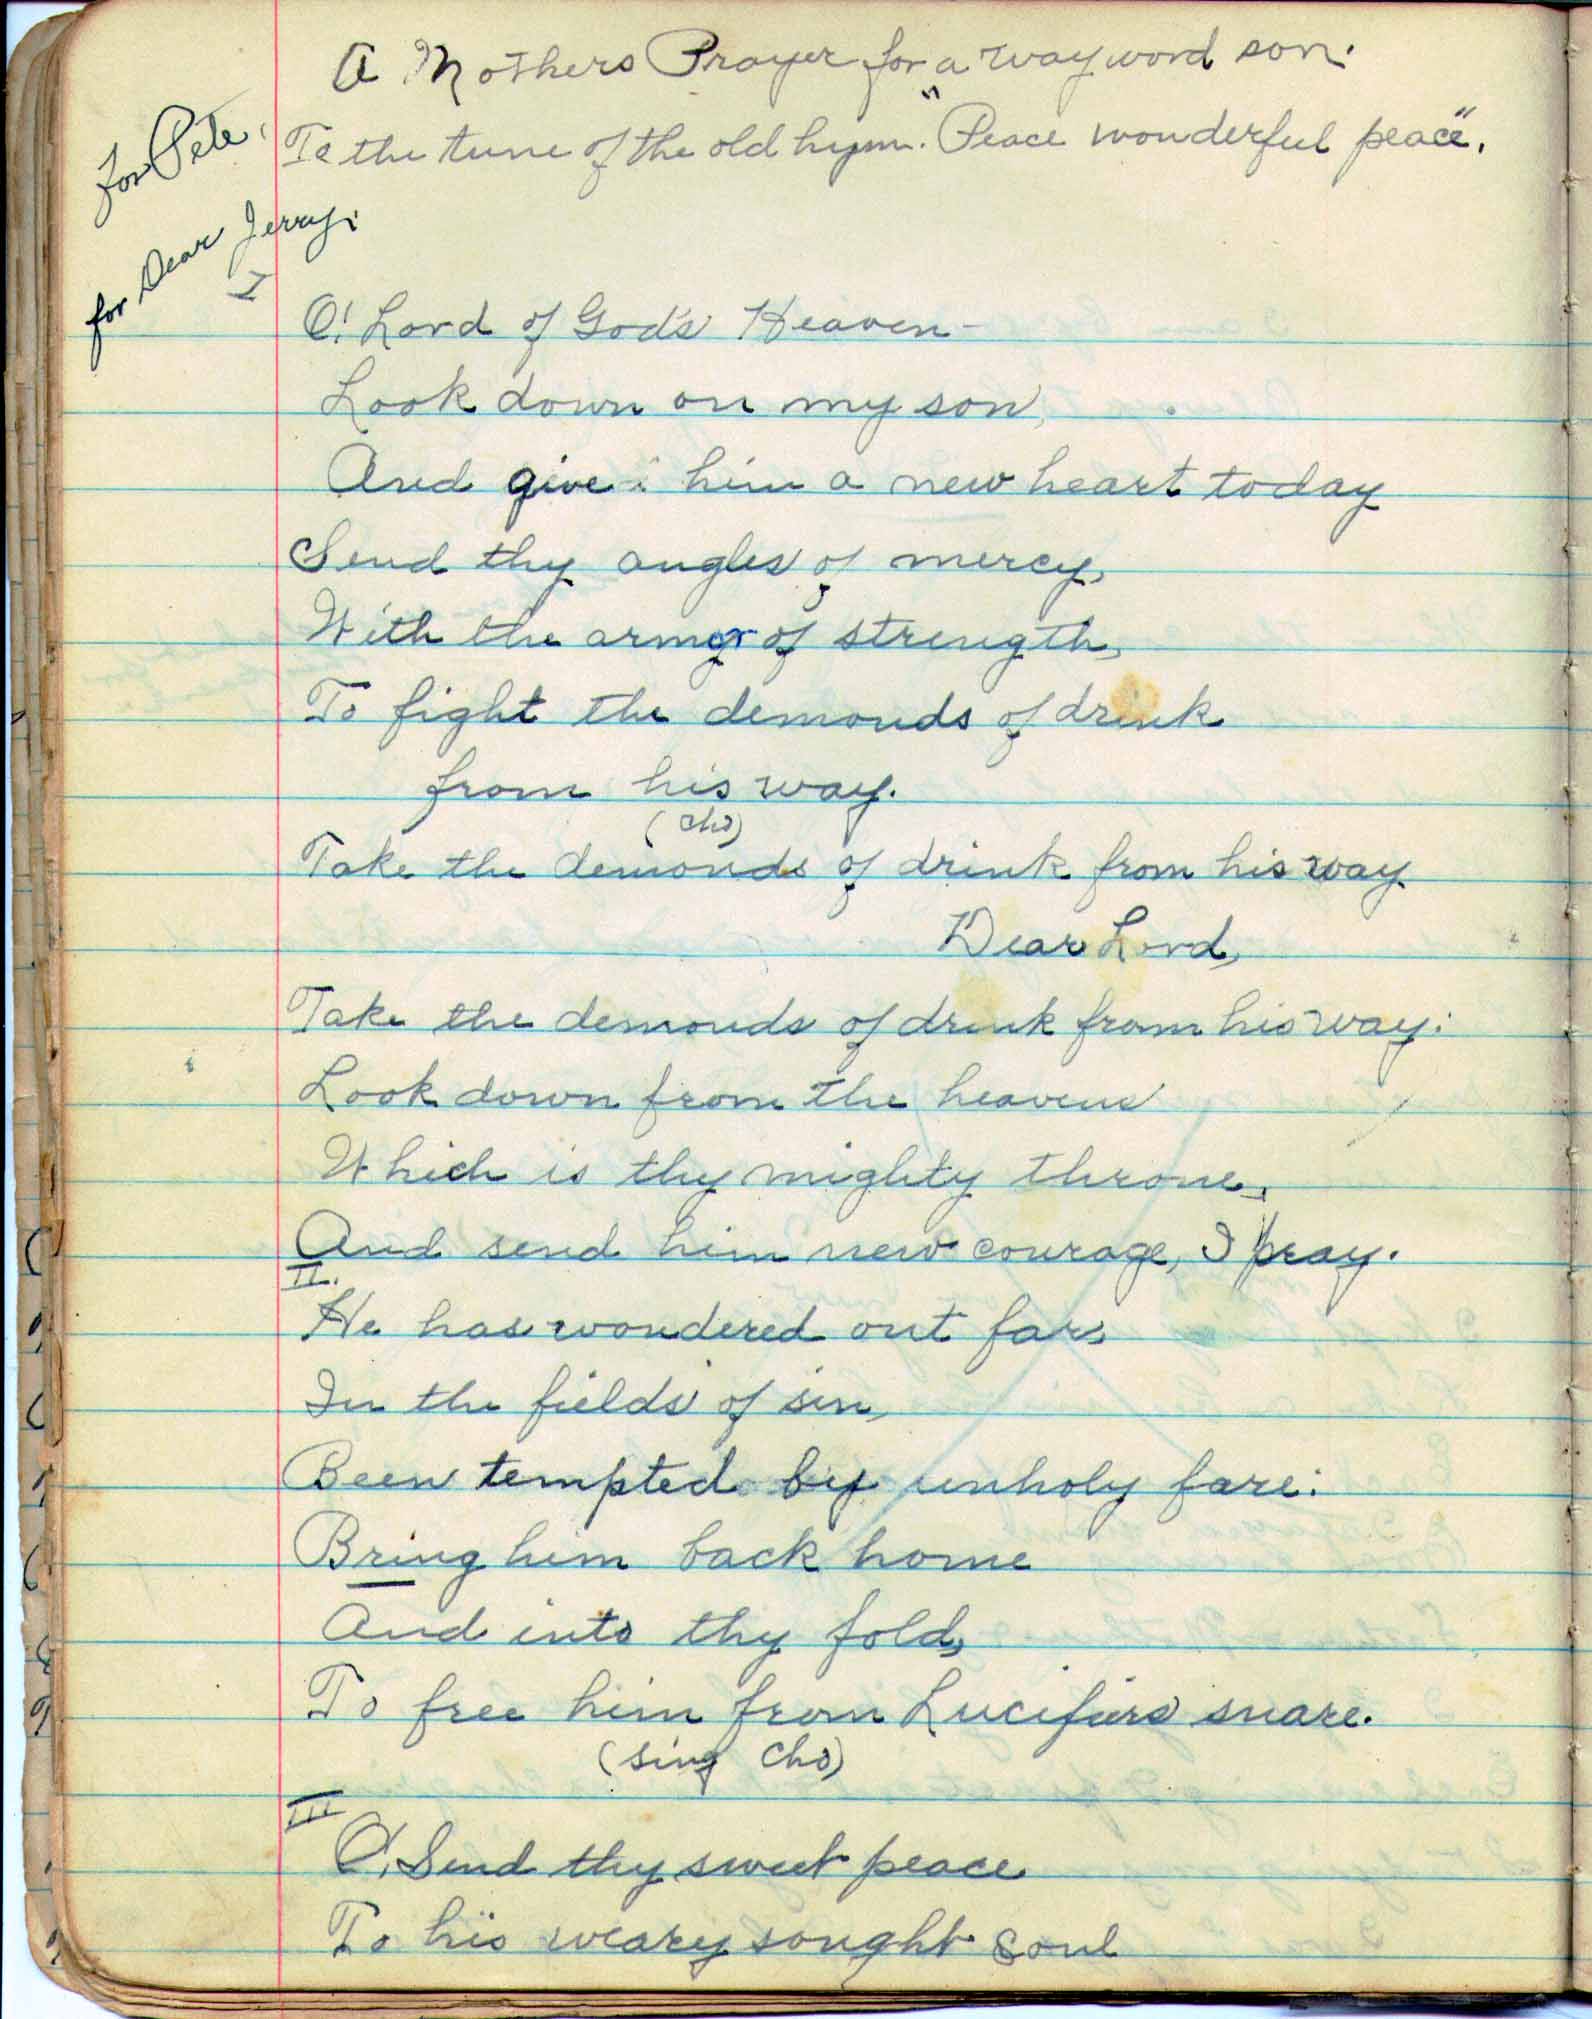 A Mothers Prayer for a wayword son.
To the tune of the old hymn. "Peace wonderful peace".
for Pete,
for Dear Jerry;
I
O! Lord of God's Heaven -
Look down on my son,
And give him a new heart today
Send thy angles of mercy,
With the armor of strength,
To fight the demonds of drink
from his way.
(cho)
Take the demonds of drink from his way
Dear Lord,
Take the demonds of drink from his way:
Look down from the heavens
Which is thy mighty throne,
And send him new courage, I pray.
II.
He has wondered out far,
In the fields of sin,
Been tempted by unholy fare:
Bring him back home
And into thy fold,
To free him from Lucifers snare.
(sing cho)
III
O, Send thy sweet peace
To his weary sought soul